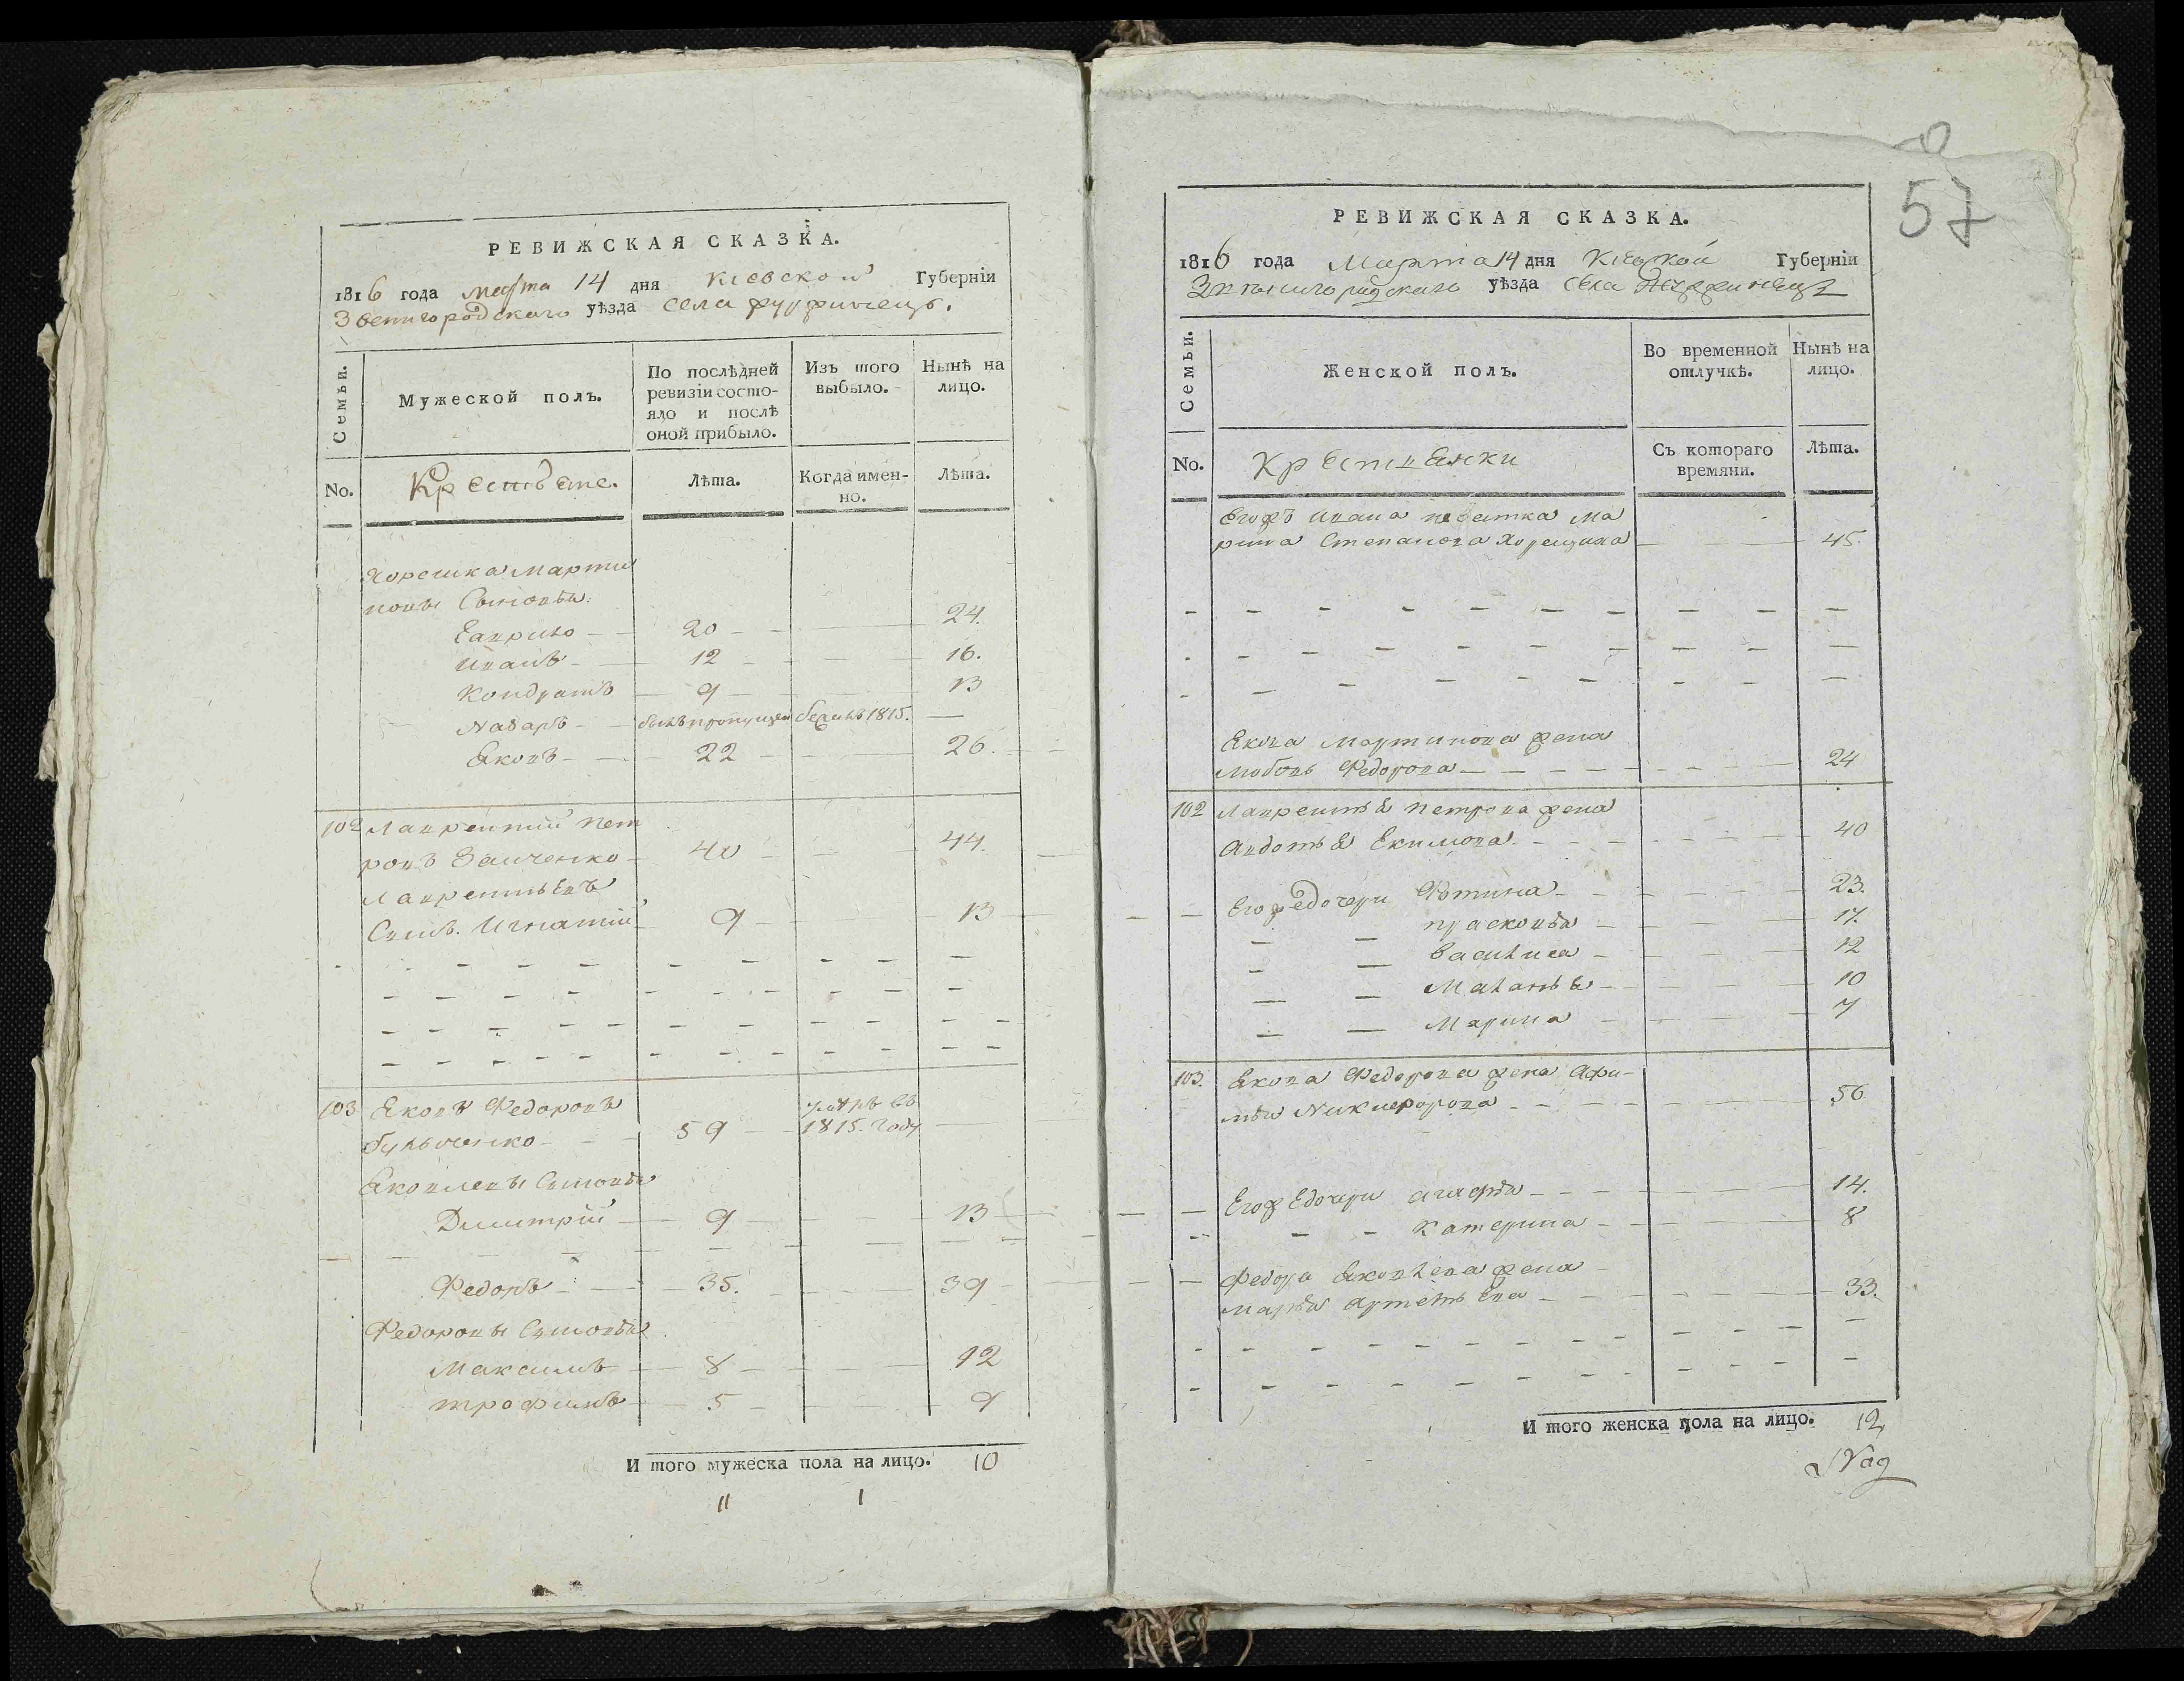 РЕВИЖСКАЯ СКАЗКА.
1816 года марта 14 дня Кіевской Губерніи
Звенигородскаго уѣзда села
Семьи.
Мужеской полъ.
По послѣдней ревизіи состояло и послѣ оной прибыло.
Изъ того выбыло.
Нынѣ на лицо.
No.
Крестьяне.
Лѣта.
Когда именно.
Лѣта.
Марти
новы Сыновья:
Гаврило 20 24.
Иванъ 12 16.
Кондратъ 9 13
Назаръ былъ пропущен 1815.
Яковъ 22 26.
102 Лаврентий Пет
ровъ Заиченко 40 44.
Лаврентьевъ
Сынъ Игнатий 9 13
103 Яковъ Федоровъ
59 умре въ 1815. году
Яковлевы Сыновья
Дмитрий 9 13
Федоръ 35. 39
Федоровы Сыновья
Максимъ 8 12
трофимъ 5 9
И того мужеска пола на лицо. 10
11 1
57
РЕВИЖСКАЯ СКАЗКА.
1816 года Марта 14 дня Киевской Губерніи
Звенигородскаго уѣзда села
Семьи.
Женской полъ.
Во временной отлучкѣ.
Нынѣ на лицо.
No.
Крестьянки
Съ котораго времяни.
Лѣта.
Ивана невѣстка Ма
рина Степанова 45.
Якова Мартинова жена
Любовь Федорова 24
102 Лаврентья Петрова жена
Авдотья Екимова 40
Его же дочери Фотина 23.
Прасковья 17.
Василиса 12
Маланья 10
Марина 7
103. Якова Федорова жена Афи-
мья Никифорова 56
Его же дочери Агафья 14.
Катерина 8
Федора Яковлева жена
Марья Артемьева 33.
И того женска пола на лицо. 12